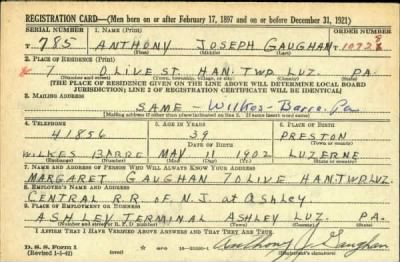 REGISTRATION CARD—(Men born on or after February 17, 1897 and on or before December 31, 1921)
SERIAL NUMBER 1. NAME (Print) ORDER NUMBER
T 785 ANTHONY JOSEPH GAUGHAN
(First) (Middle) (Last)
2. PLACE OF RESIDENCE (Print)
7 OLIVE ST. HAN. TWP. LUZ. PA.
(Number and street) (Town, township, village, or city) (County) (State)
[THE PLACE OF RESIDENCE GIVEN ON THE LINE ABOVE WILL DETERMINE LOCAL BOARD
JURISDICTION; LINE 2 OF REGISTRATION CERTIFICATE WILL BE IDENTICAL]
3. MAILING ADDRESS
SAME - Wilkes-Barre, Pa
[Mailing address if other than place indicated on line 2. If same insert word same]
4. TELEPHONE 5. AGE IN YEARS 6. PLACE OF BIRTH
41856 39 PRESTON
DATE OF BIRTH (Town or county)
WILKES BARRE MAY 11 1902 LUZERNE
(Exchange) (Number) (Mo.) (Day) (Yr.) (State or country)
7. NAME AND ADDRESS OF PERSON WHO WILL ALWAYS KNOW YOUR ADDRESS
MARGARET GAUGHAN 7 OLIVE HAN. TWP. LUZ.
8. EMPLOYER'S NAME AND ADDRESS
CENTRAL R.R. of N.J. at Ashley
9. PLACE OF EMPLOYMENT OR BUSINESS
ASHLEY TERMINAL ASHLEY LUZ. PA.
(Number and street or R. F. D. number) (Town) (County) (State)
I AFFIRM THAT I HAVE VERIFIED ABOVE ANSWERS AND THAT THEY ARE TRUE.
D. S. S. Form 1
(Revised 1-5-42) GPO Anthony J Gaughan
(Registrant's signature)